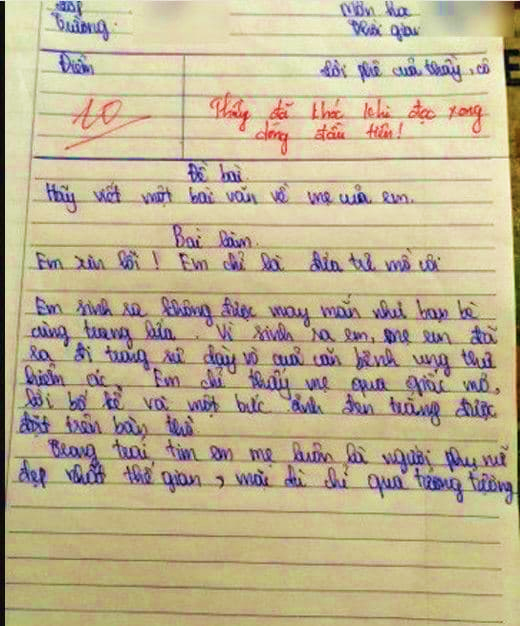 Lớp
Trường
Môn học
Thời gian
Điểm
Lời phê của thầy, cô
10
Thầy đã khóc khi đọc xong
dòng đầu tiên!
Đề bài
Hãy viết một bài văn về mẹ của em.
Bài làm.
Em xin lỗi! Em chỉ là đứa trẻ mồ côi
Em sinh ra không được may mắn như bạn bè
cùng trang lứa. Vì sinh ra em, mẹ em đã
ra đi trong sự dày vò của căn bệnh ung thư
hiểm ác. Em chỉ thấy mẹ qua giấc mơ,
lời bố kể và một bức ảnh đen trắng được
đặt trên bàn thờ.
Trong trái tim em mẹ luôn là người phụ nữ
đẹp nhất thế gian, mãi dù chỉ qua tưởng tượng